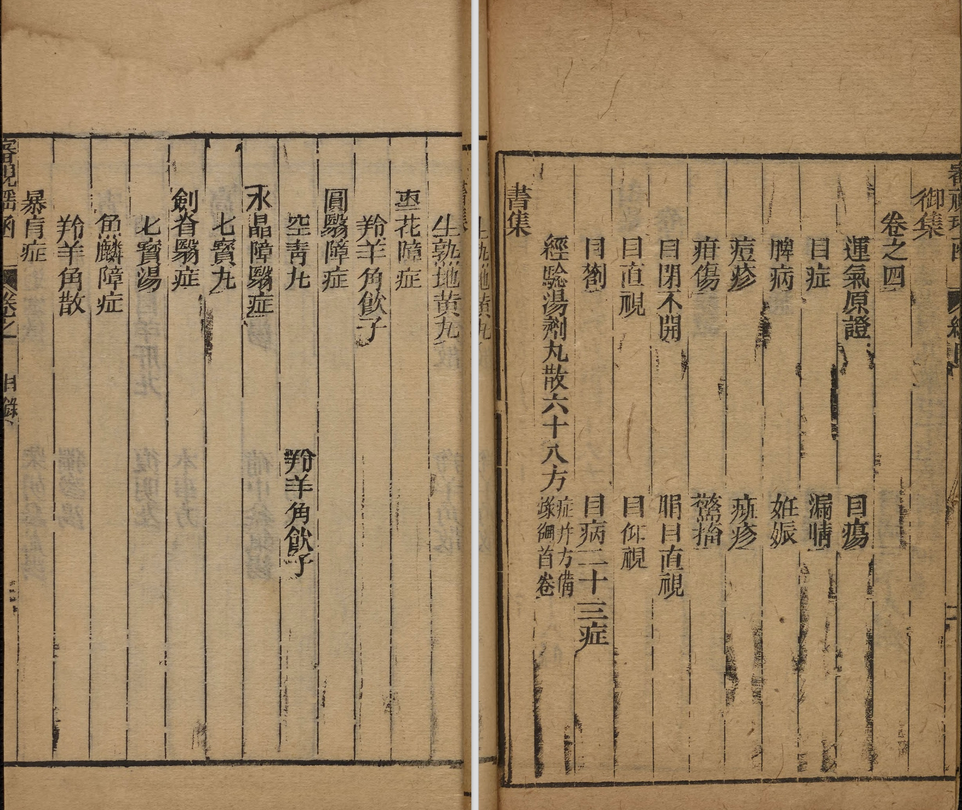 御集
卷之四
運氣原證 目瘍
目症 漏睛
脾病 妊娠
痘疹 㾦疹
疳傷
目閉不開 眼目直視
目直視 目仰視
目劄 目病二十三症
經驗湯劑丸散六十八方 症并方備 首卷
書集
生熟地黄丸
棗花障症
羚羊角飲子
圓翳障症
空靑丸 羚羊角飲子
水晶障翳症
七寳丸
劍脊翳症
七寳湯
魚鱗障症
羚羊角散
暴盲症
卷之一
目錄